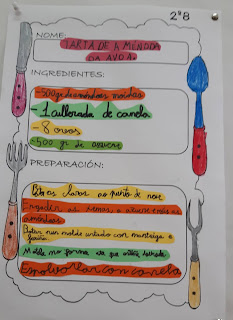 2ºB
NOME:
TARTA DE AMÉNDOA
DA AVOA.
INGREDIENTES:
-500gr de améndoas moidas
-1 cullerada de canela
-8 ovos
-500 gr de azucre
PREPARACIÓN:
claras ao punto de neve
Engadir as xemas o azucre e as
améndoas
nun molde untado con manteiga e
fariña.
no forno
Empolvorar con canela